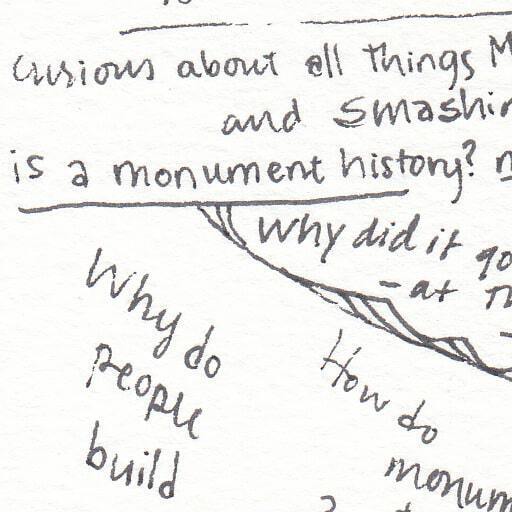 curious about all things M
and smashin
is a monument history?
Why did it go
- at
Why do
people
build
How do
monum
?